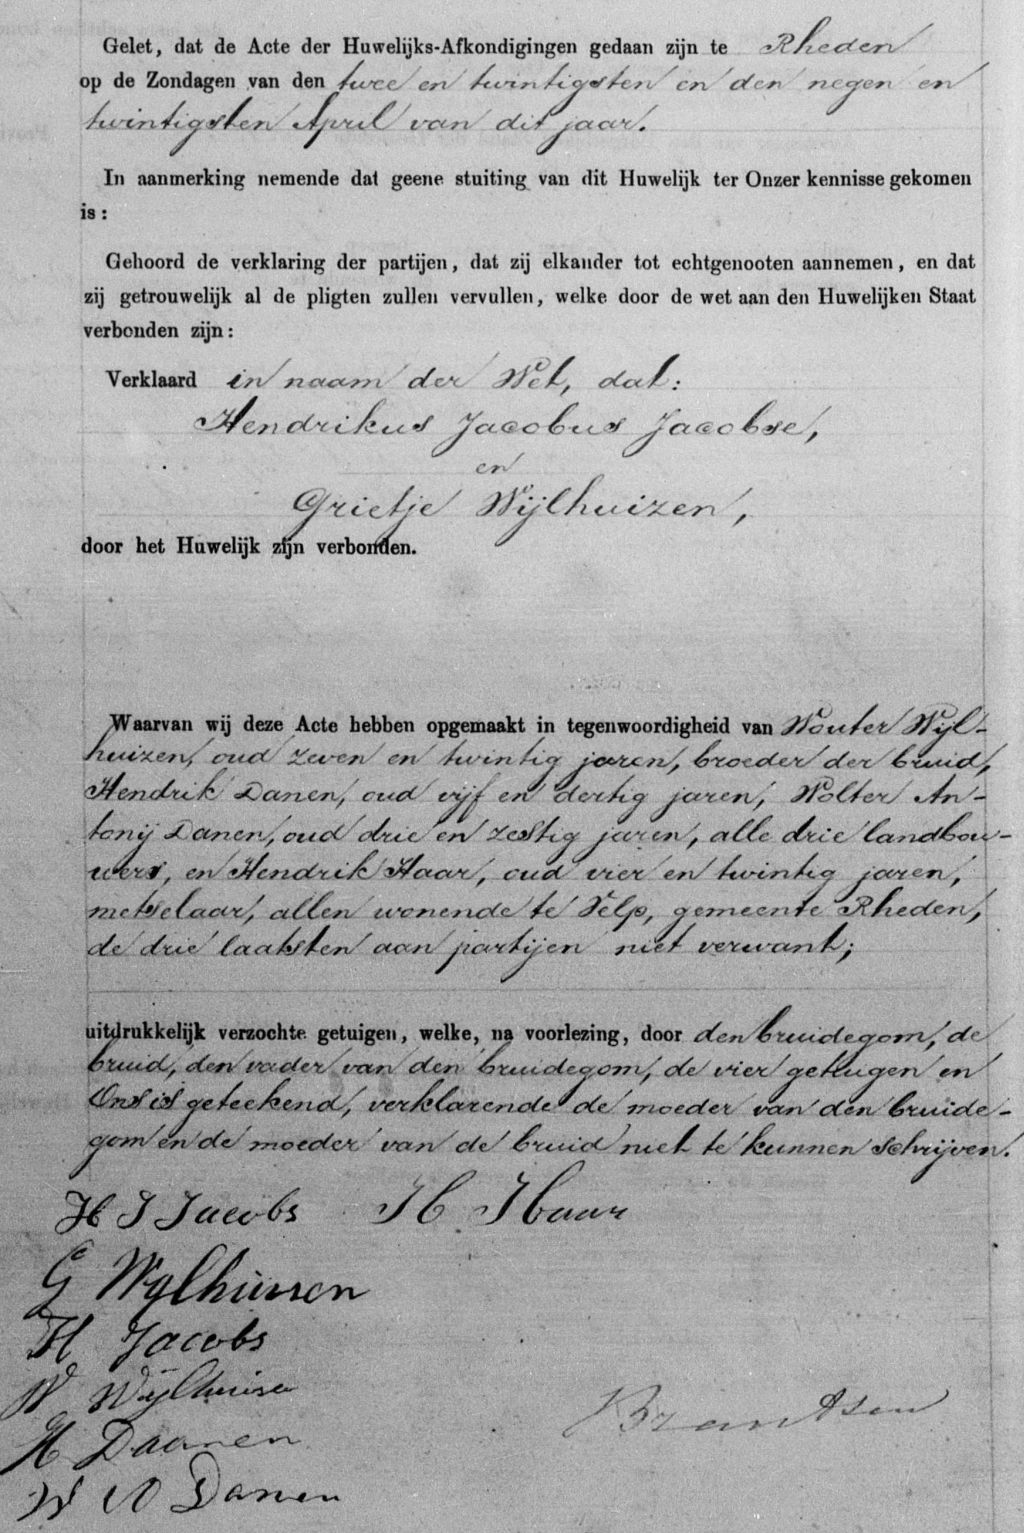 Gelet, dat de Acte der Huwelijks-Afkondigingen gedaan zijn te Rheden
op de Zondagen van den twee en twintigsten en den negen en
twintigsten April van dit jaar.
In aanmerking nemende dat geene stuiting van dit Huwelijk ter Onzer kennisse gekomen
is:
Gehoord de verklaring der partijen, dat zij elkander tot echtgenooten aannemen, en dat
zij getrouwelijk al de pligten zullen vervullen, welke door de wet aan den Huwelijken Staat
verbonden zijn:
Verklaard in naam der Wet, dat:
Hendrikus Jacobus Jacobse,
en
Grietje Wijlhuizen,
door het Huwelijk zijn verbonden.
Waarvan wij deze Acte hebben opgemaakt in tegenwoordigheid van Wouter Wijl-
huizen, oud zeven en twintig jaren, broeder der bruid,
Hendrik Danen, oud vijf en dertig jaren, Wolter An-
tonij Danen, oud drie en zestig jaren, alle drie landbou-
wers, en Hendrik Haar, oud vier en twintig jaren,
metselaar, allen wonende te Velp, gemeente Rheden,
de drie laatsten aan partijen niet verwant;
uitdrukkelijk verzochte getuigen, welke, na voorlezing, door den bruidegom, de
bruid, den vader van den bruidegom, de vier getuigen en
Ons is geteekend, verklarende de moeder van den bruide-
gom en de moeder van de bruid niet te kunnen schrijven.
H J Jacobs H Haar
G Wylhuisen
H Jacobs
W Wijlhuisen
H Daanen
Brantsen
W A Danen